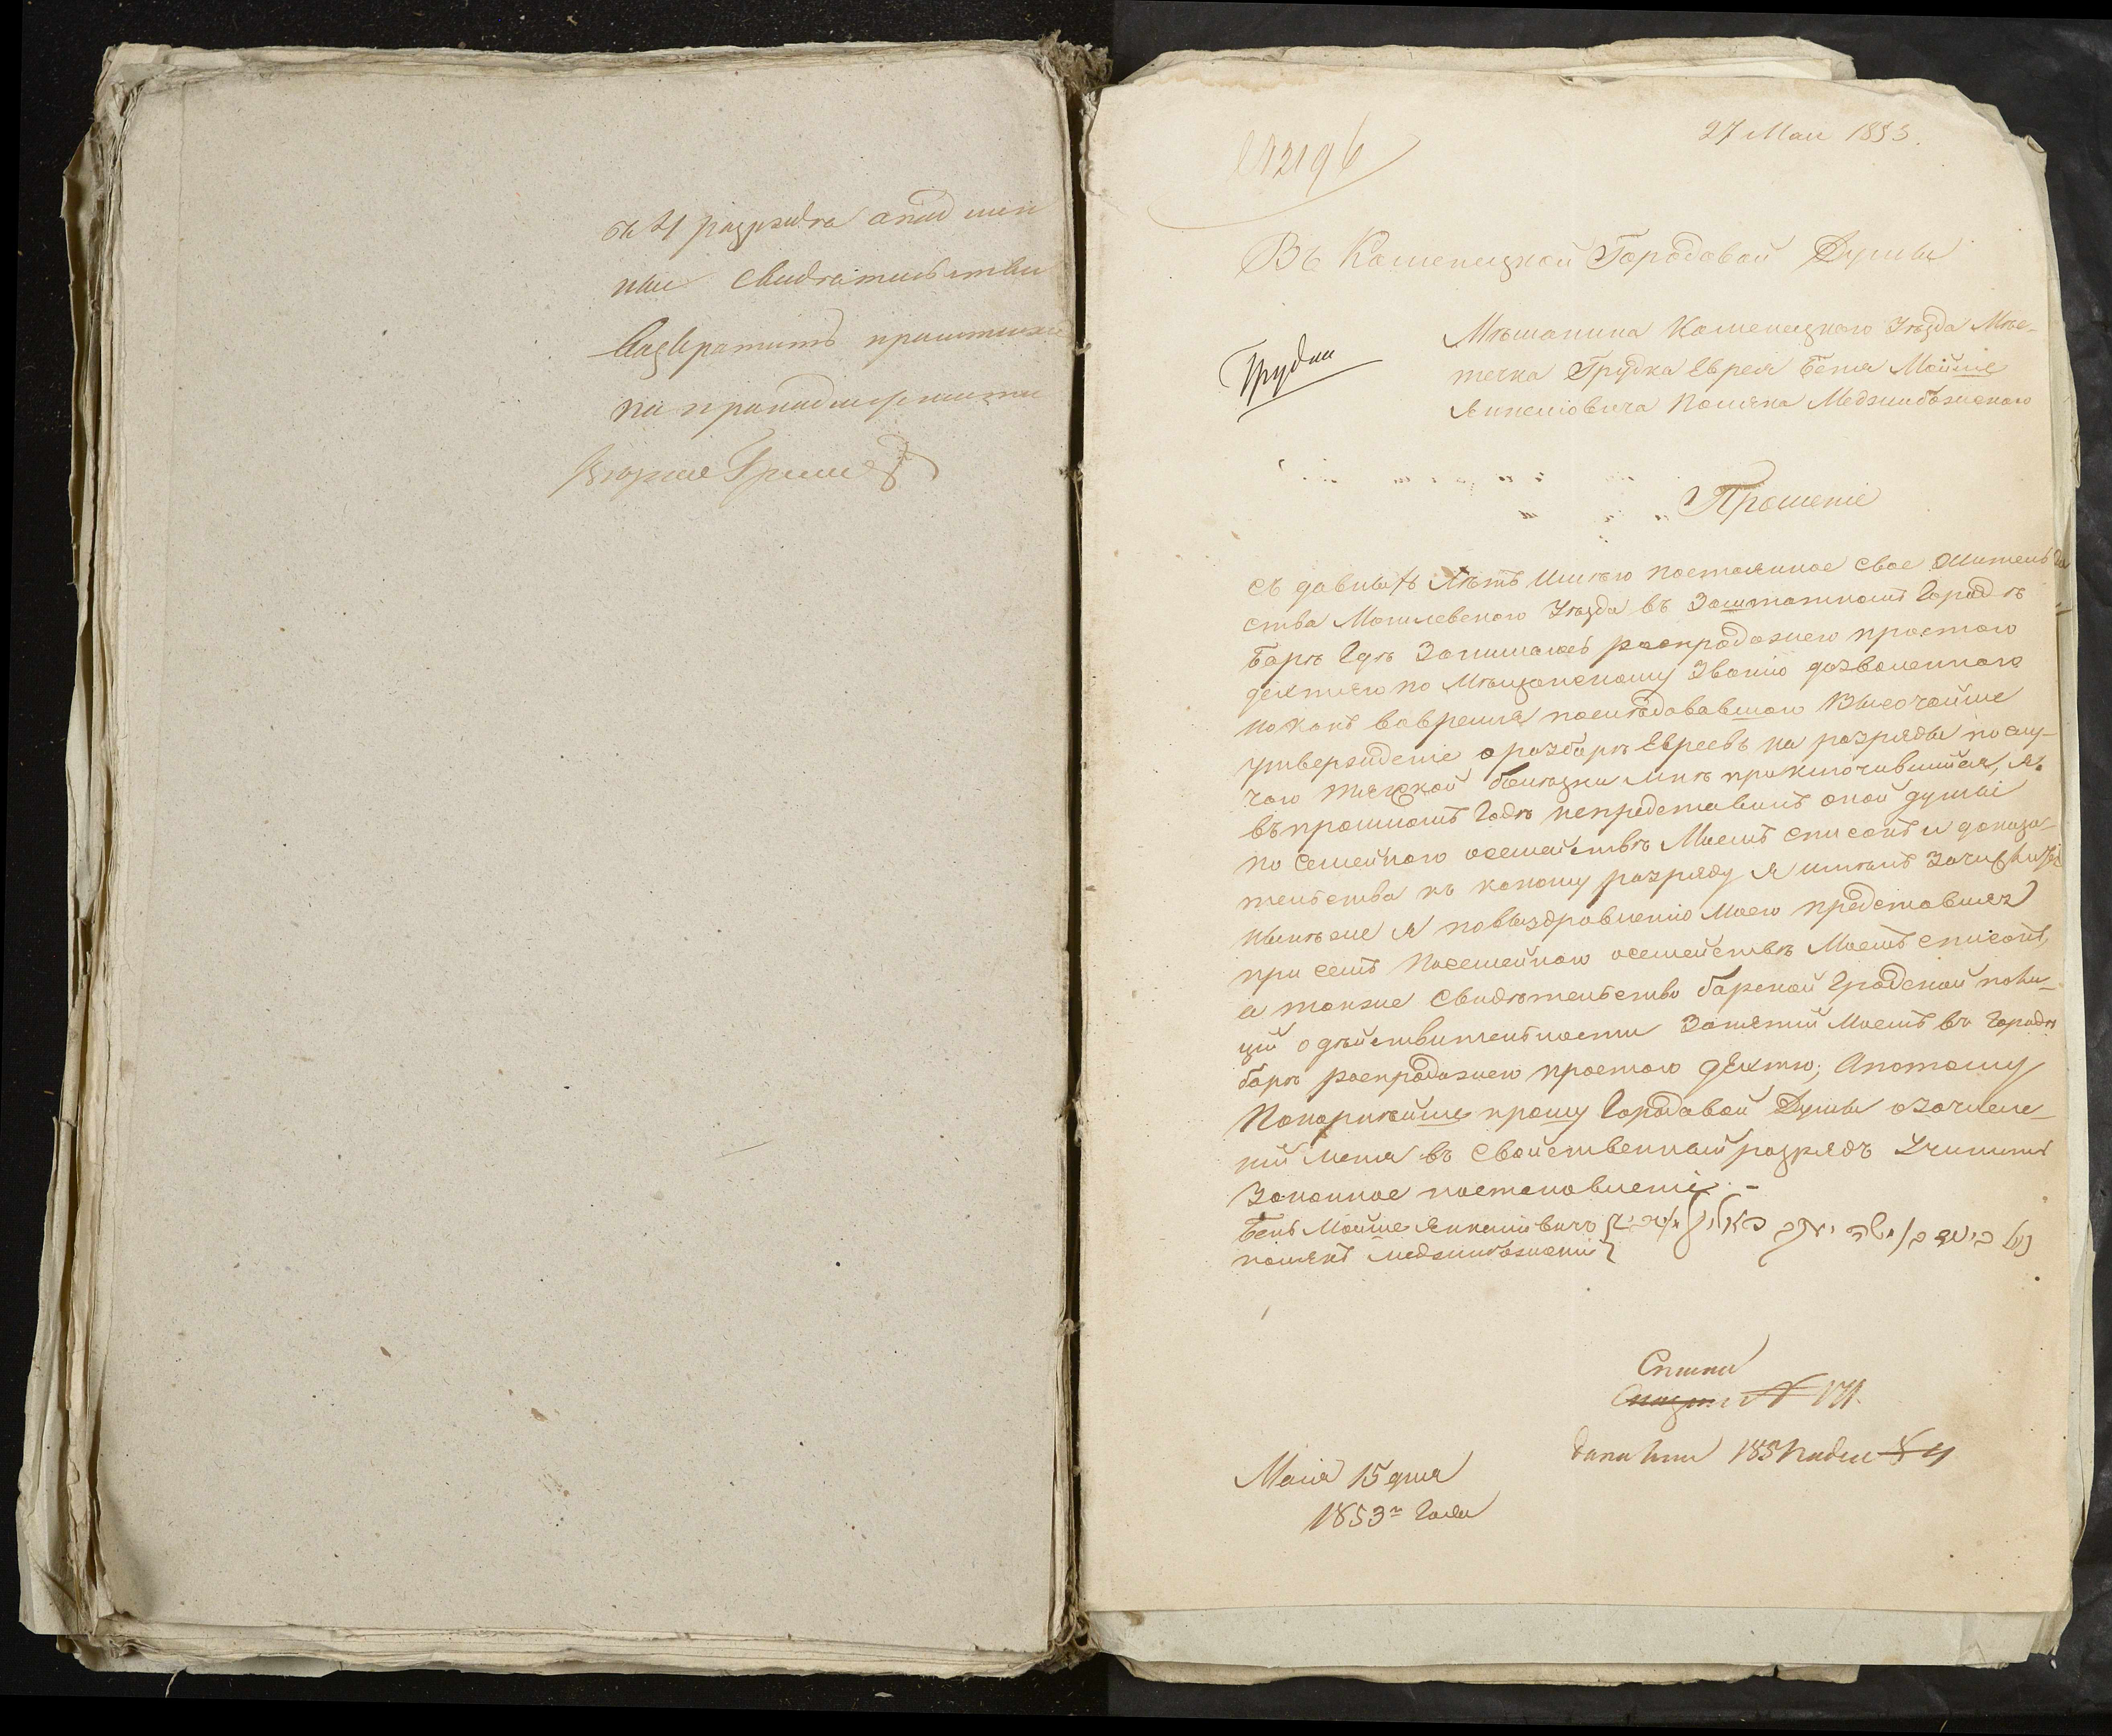 разряда
свидетельства
возвратить
по принадлежности
27 Маи 1853.
12196
Въ Каменецкой Городовой Думы
Мѣщанина Каменецкаго Уѣзда Мѣс-
течка Грудка Еврея Беня Мойше
Янкелiовича Поляка Меджибожскаго
Грудки
Прошеніе
Съ давныхъ Лѣтъ Имѣю постоянное свое Жительъ
ства Могилевскаго Уѣзда въ Заштатномъ Городѣ
Барѣ Гдѣ Занимаюсь распродажею простого
дехтяю по Мѣщанскому Званію дозволенного
но какъ вовремя последовавшаго Высочайше
утверждение о разборѣ Евреевъ на разряды по слу-
чаю тяжкой болѣзни мнѣ приключившейся, я
въ прошломъ Годѣ непредставилъ оной думы
по семейного осемействѣ Моемъ списокъ и доказа-
тельства къ какому разряду я имѣлъ
нынѣ же я по выздровленію моего представляя
при семъ Посемейного осемействѣ Моемъ списокъ,
а также Свидѣтельство барской Градской поли-
ціи о дѣйствительности Занятій Моемъ въ Городѣ
барѣ распродажею простого дехтю; Апотому
Покорнѣйше прошу Городовой Думы озачисле-
ніи меня въ Свойственный разрядъ Учинить
Законное постановленіе. -
Бень Мойше Янкеліовичъ
полякъ Меджибожскій
Списки
№ 171.
Маія 15 дня
1853го Года